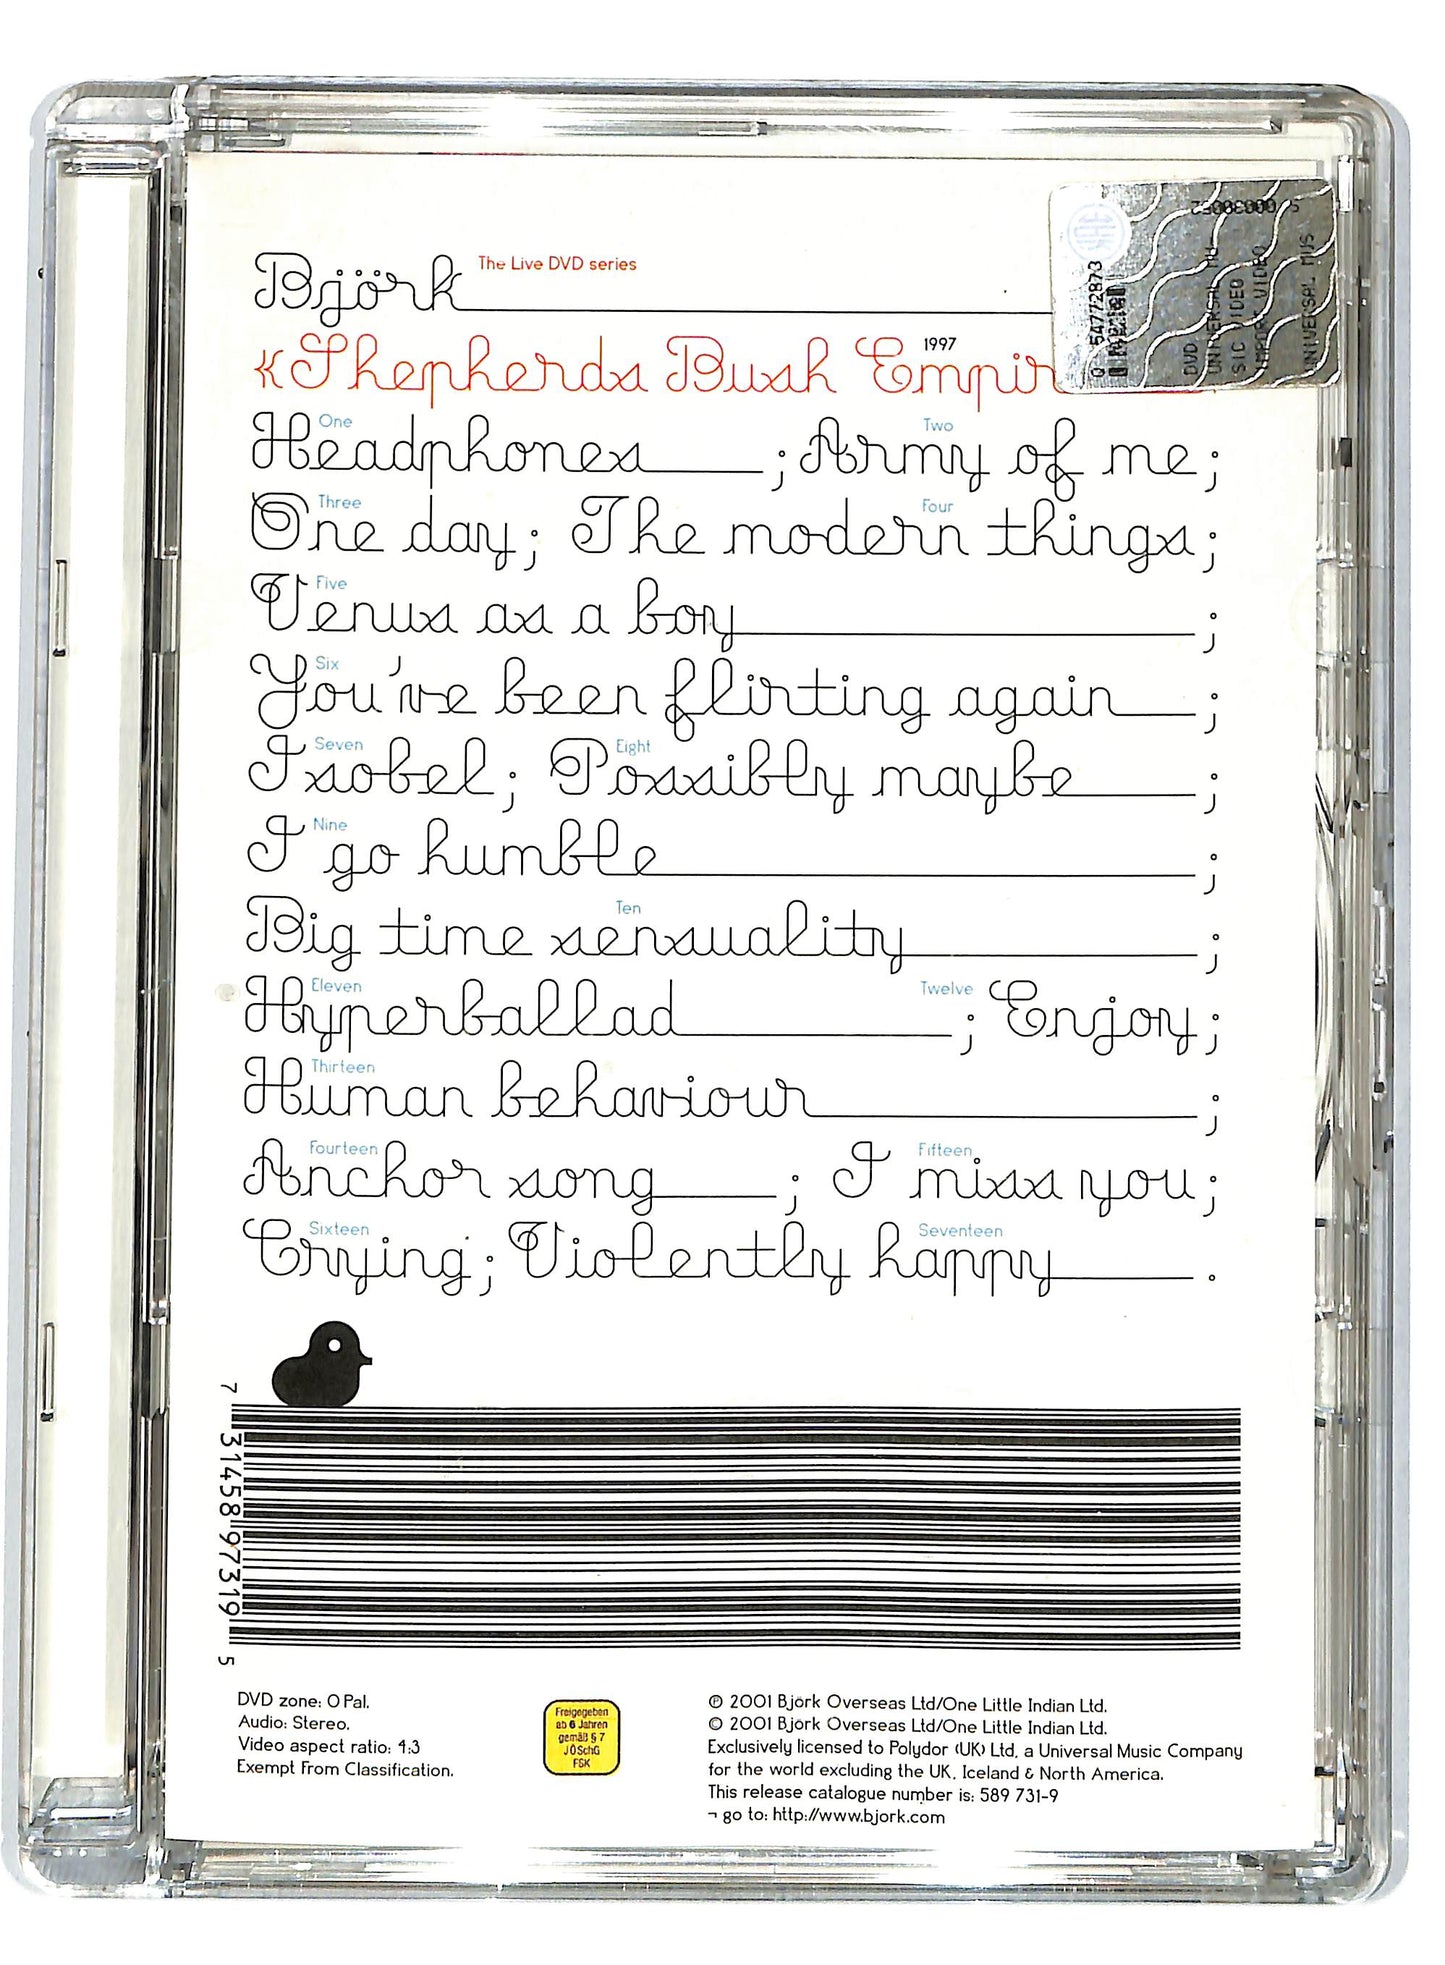 Björk The Live DVD series
1997
«Shepherds Bush
One Two
Headphones ; Army of me;
Three Four
One day; The modern things;
Five
Venus as a boy ;
Six
You've been flirting again ;
Seven Eight
Isobel; Possibly maybe ;
Nine
I go humble ;
Ten
Big time sensuality ;
Eleven Twelve
Hyperballad ; Enjoy;
Thirteen
Human behaviour ;
Fourteen Fifteen
Anchor song ; I miss you;
Sixteen Seventeen
Crying; Violently happy .
7 31458 97319 5
DVD zone: 0 Pal.
Audio: Stereo.
Video aspect ratio: 4:3
Exempt From Classification.
Freigegeben
ab 6 Jahren
gemäß § 7
JÖSchG
FSK
℗ 2001 Björk Overseas Ltd/One Little Indian Ltd.
© 2001 Björk Overseas Ltd/One Little Indian Ltd.
Exclusively licensed to Polydor (UK) Ltd, a Universal Music Company
for the world excluding the UK, Iceland & North America.
This release catalogue number is: 589 731-9
¬ go to: http://www.bjork.com
DVD
UNIVERSAL MU
SIC VIDEO
IMPORT VIDEO
UNIVERSAL MUS